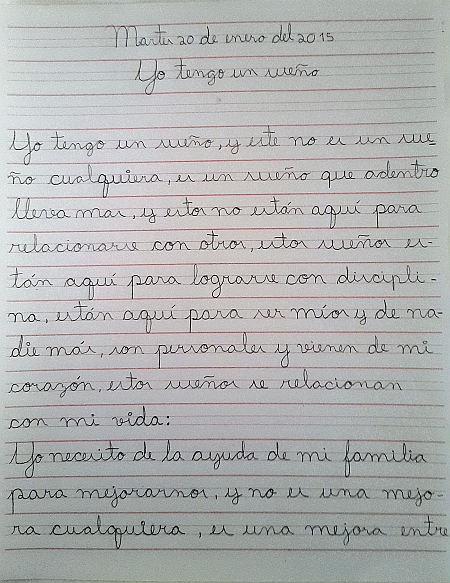 Martes 20 de enero del 2015
Yo tengo un sueño
Yo tengo un sueño, y este no es un sue-
ño cualquiera, es un sueño que adentro
lleva mas, y estos no están aquí para
relacionarse con otros, estos sueños es-
tán aquí para lograrse con discipli-
na, están aquí para ser míos y de na-
die más, son personales y vienen de mi
corazón, estos sueños se relacionan
con mi vida:
Yo necesito de la ayuda de mi familia
para mejorarnos, y no es una mejo-
ra cualquiera, es una mejora entre